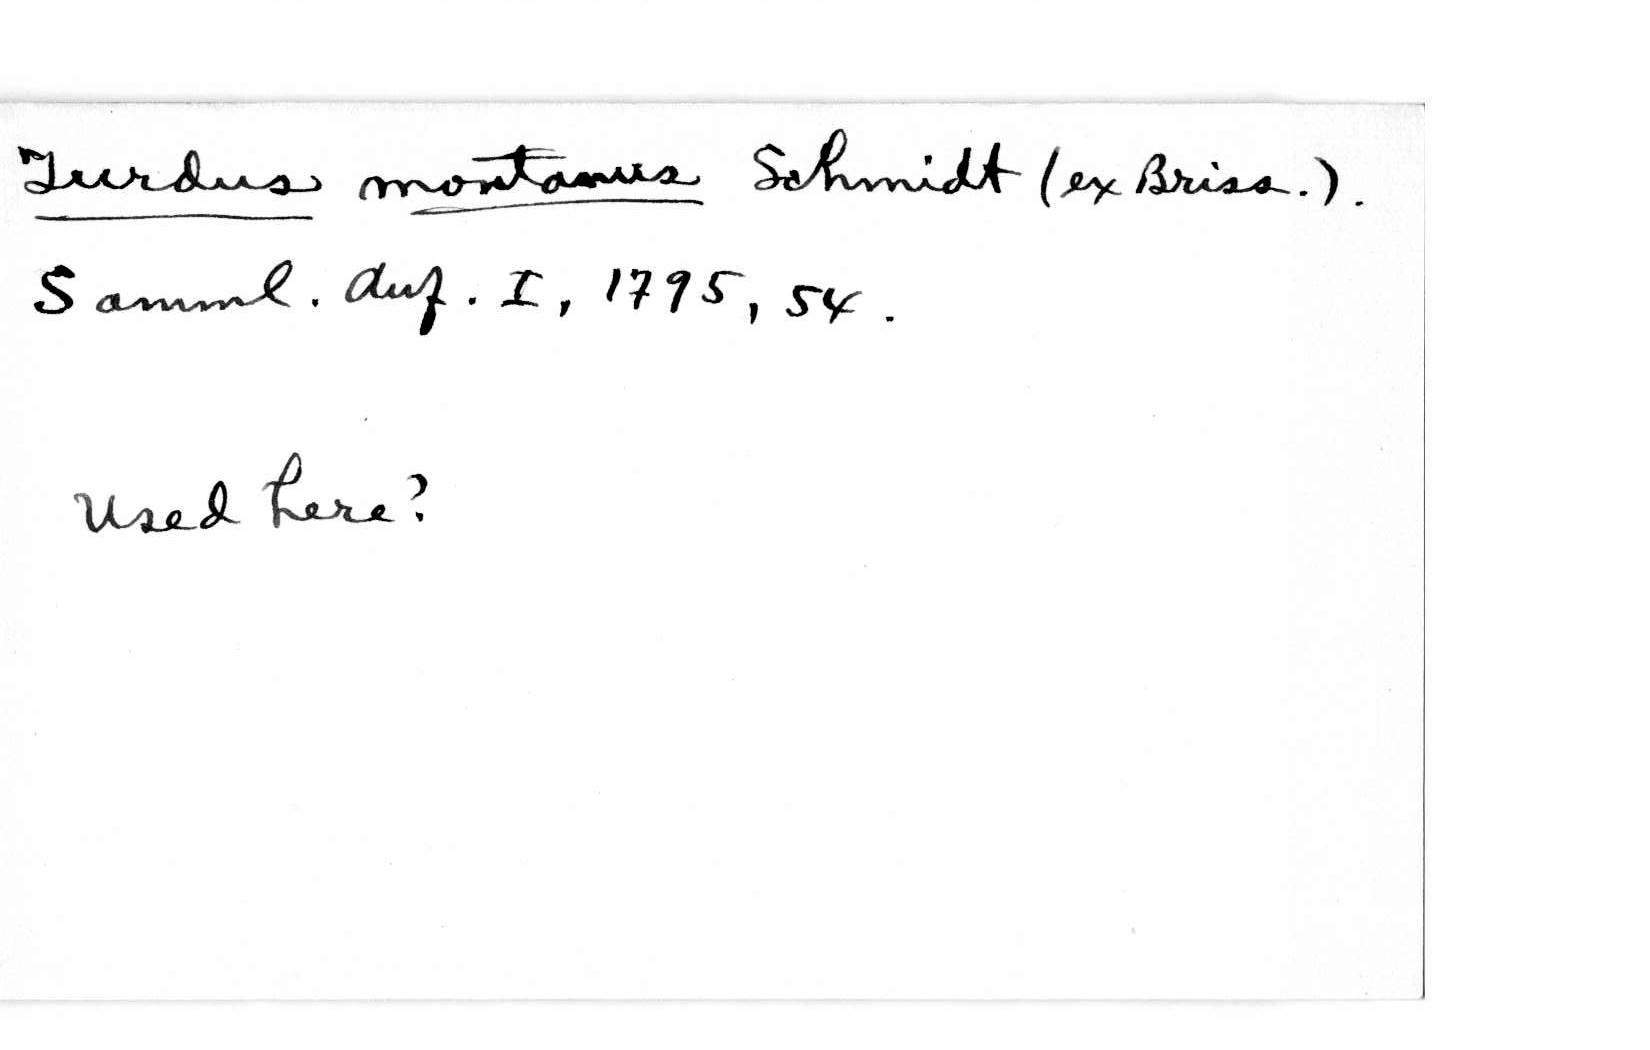 Turdus montanus Schmidt (ex Briss.).
Samml. Auf. I, 1795, 54.
Used here?